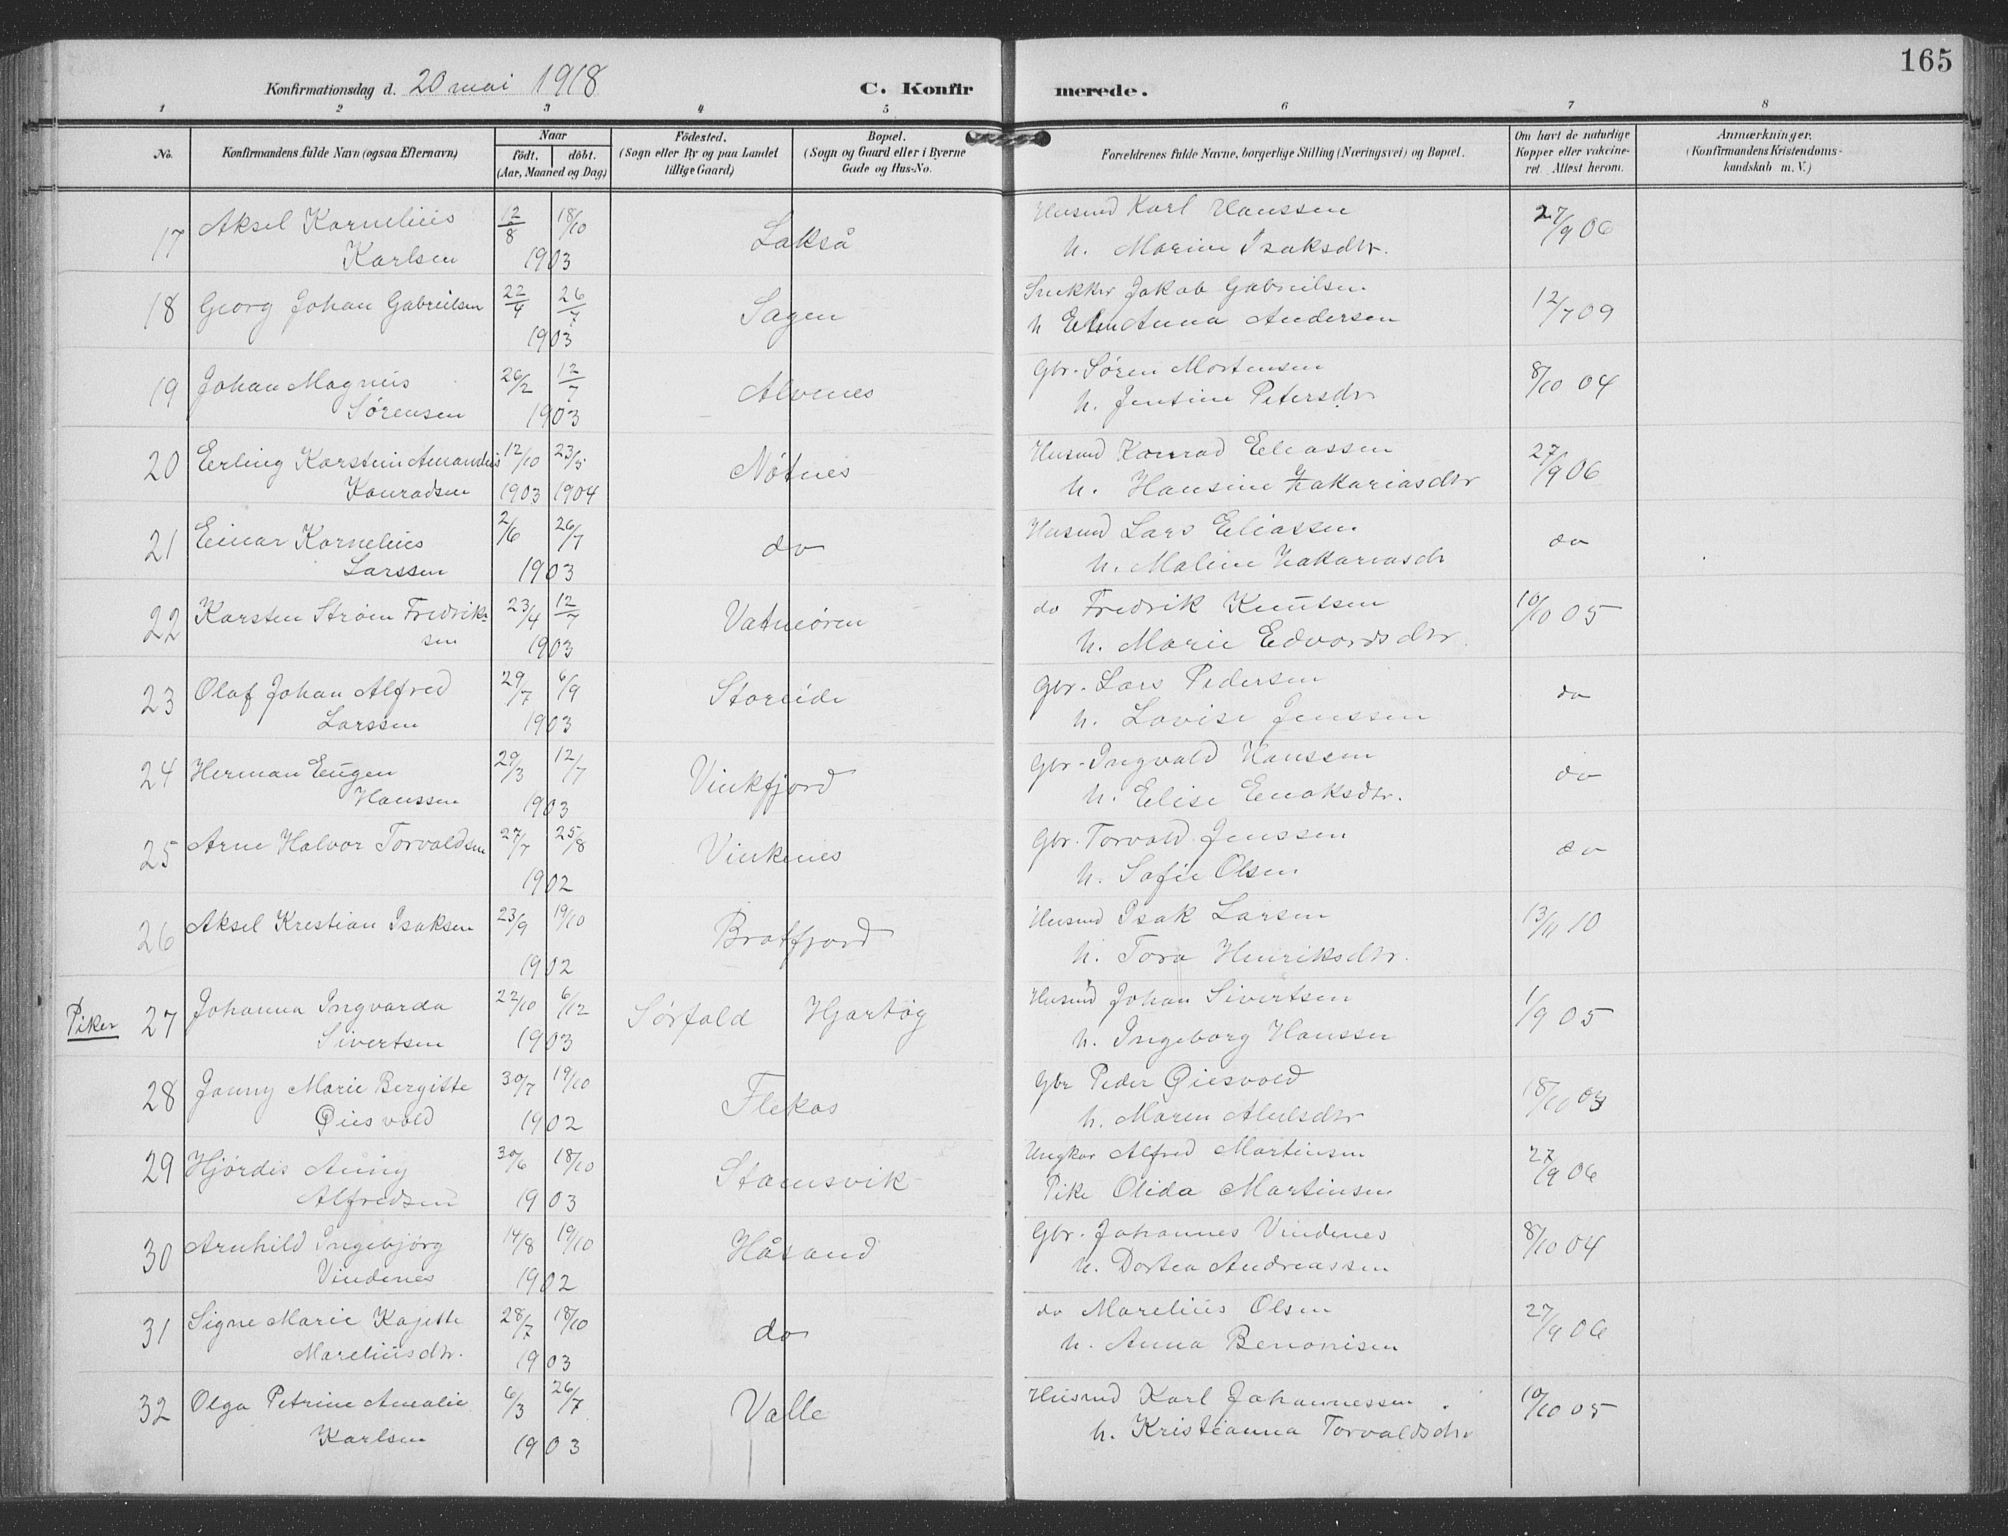 165
Konfirmationsdag d. 20 mai 1918 C. Konfirmerede.
1 2 3 4 5 6 7 8
No. Konfirmandens fulde Navn (ogsaa Efternavn) Naar født, døbt. (Aar, Maaned og Dag) Fødested. (Sogn eller By og paa Landet tillige Gaard) Bopæl. (Sogn og Gaard eller i Byerne Gade og Hus-No. Forældrenes fulde Navne, borgerlige Stilling (Næringsvei) og Bopæl. Om havt de naturlige Kopper eller vakcineret. Attest herom. Anmærkninger. (Konfirmandens Kristendomskundskab m. V.)
17 Aksel Kornelius 12/8 18/10 Lakså Husmd Karl Hanssen 27/9 06
Karlsen 1903 h. Marine Isaksdtr.
18 Georg Johan Gabrielsen 22/4 26/7 Sagen Snekker Jakob Gabrielsen 12/7 09
1903 h Elen Anna Andersen
19 Johan Magnus 26/2 12/7 Alvenes Gbr. Søren Mortensen 8/10 04
Sørensen 1903 h. Jentine Petersdtr
20 Erling Karstein Amandus 12/10 23/5 Nøtnes Husmd Konrad Eliassen 27/9 06
Konradsen 1903 1904 h. Hansine Zakariasdtr
21 Einar Kornelius 2/6 26/7 do Husmd Lars Eliassen do
Larssen 1903 h. Maline Zakariasdtr
22 Karsten Strøm Fredrik- 23/4 12/7 Vatneøren do Fredrik Knutsen 10/10 05
sen 1903 h. Marie Edvardsdtr
23 Olaf Johan Alfred 29/7 6/9 Storeide Gbr. Lars Pedersen do
Larssen 1903 h. Lovise Jenssen
24 Herman Eugen 29/3 12/7 Vinkfjord Gbr. Ingvald Hanssen do
Hanssen 1903 h. Elise Enoksdtr.
25 Arne Halvor Torvaldsen 27/7 25/8 Vinkenes Gbr. Torvald Jenssen do
1902 h. Sofie Olsen
26 Aksel Krestian Isaksen 23/9 19/10 Bratfjord Husmd Isak Larsen 13/11 10
1902 h. Tora Henriksdtr.
Piker 27 Johanna Ingvarda 22/10 6/12 Sørfold Hjartøy Husmd Johan Sivertsen 1/9 05
Sivertsen 1903 h. Ingeborg Hanssen
28 Jonny Marie Bergitte 30/7 19/10 Flekas Gbr Peder Giesvold 18/10 03
Giesvold 1902 h. Maren
29 Hjørdis Anny 30/6 18/10 Stamsvik Ungkar Alfred Martinsen 27/9 06
Alfredsen 1903 Pike Olida Martinsen
30 Arnhild Ingebjørg 14/8 19/10 Håsand Gbr. Johannes Vindenes 8/10 04
Vindenes 1902 h. Dortea Andreassen
31 Signe Marie Kajette 28/7 18/10 do do Marelius Olsen 27/9 06
Mareliusdtr. 1903 h. Anna Benonisen
32 Olga Petrine Amalie 6/3 26/7 Valle Husmd Karl Johannessen 10/10 05
Karlsen 1903 h. Kristianna Torvaldsdtr